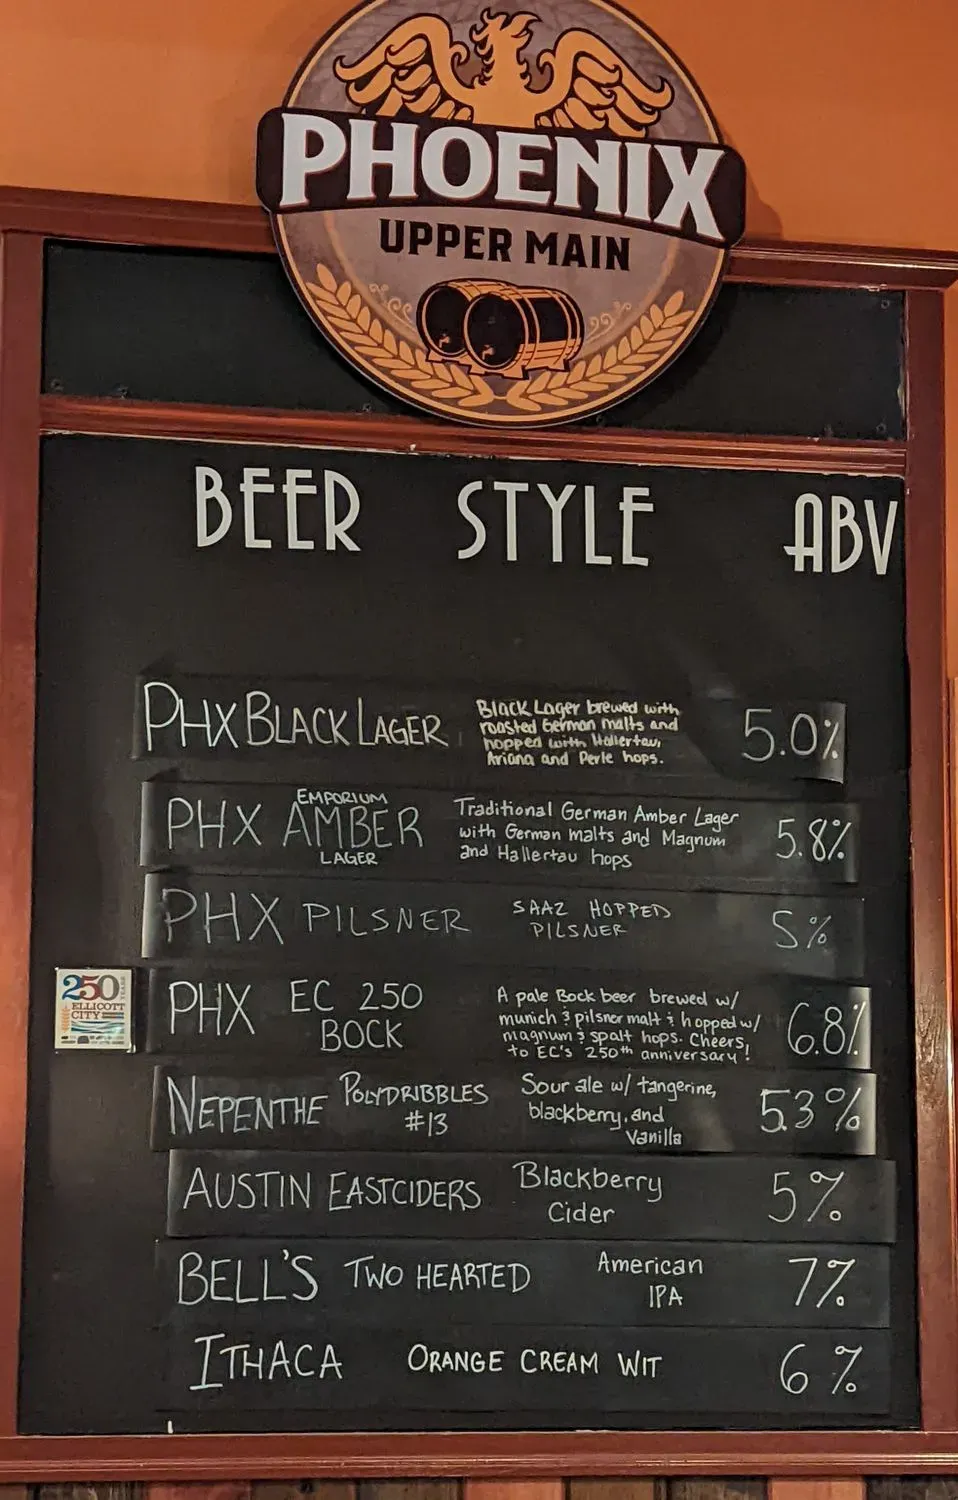 PHOENIX
UPPER MAIN
BEER STYLE ABV
PHX BLACK LAGER
Black Lager brewed with
roasted German malts and
hopped with Hallertau,
Ariana and Perle hops.
5.0%
PHX EMPORIUM
AMBER
LAGER
Traditional German Amber Lager
with German malts and Magnum
and Hallertau hops
5.8%
PHX PILSNER
SAAZ HOPPED
PILSNER
5%
250 YEARS
ELLICOTT
CITY
PHX EC 250
BOCK
A pale Bock beer brewed w/
munich & pilsner malt & hopped w/
magnum & spalt hops. Cheers,
to EC's 250th anniversary!
6.8%
NEPENTHE POLYDRIBBLES
#13
Sour ale w/ tangerine,
blackberry, and
Vanilla
5.3%
AUSTIN EASTCIDERS
Blackberry
Cider
5%
BELL'S TWO HEARTED
American
IPA
7%
ITHACA ORANGE CREAM WIT 6%